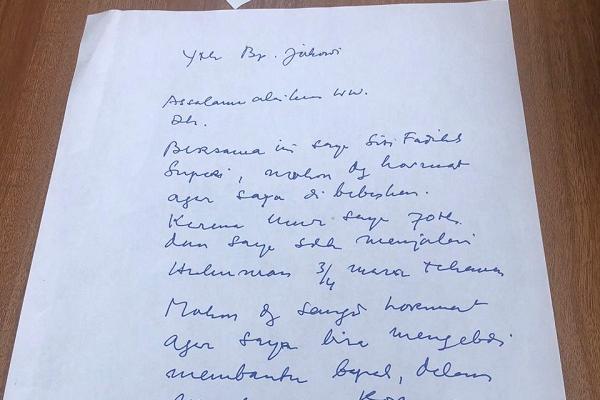 Yth Bp. Jokowi
Assalamu alaikum WW.
Dh.
Bersama ini saya Siti Fadilah
Supari, mohon dg hormat
agar saya di bebaskan.
Karena umur saya 70th.
dan saya sdh menjalani
Hukuman 3/4 masa tahanan
Mohon dg sangat hormat
agar saya bisa mengabdi
membantu bapak, dalam